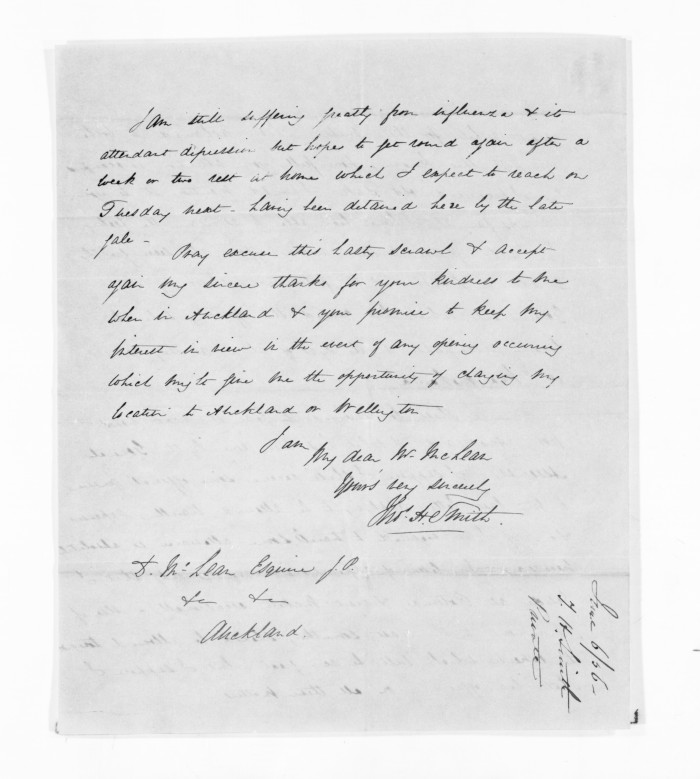 I am still suffering greatly from influenza & its
attendant depression but hope to get round again after a
week or two rest at home which I expect to reach on
Tuesday next - having been detained here by the late
gale -
Pray excuse this hasty scrawl & accept
again my sincere thanks for your kindness to me
when in Auckland & your promise to keep my
interest in view in the event of any opening occurring
which might give me the opportunity of changing my
location to Auckland or Wellington
I am
My dear Mr. McLean
Yours very sincerely
Thos. H. Smith.
D. McLean Esquire J.P.
&c &c
Auckland
June 6/56 -
T. H. Smith
Private